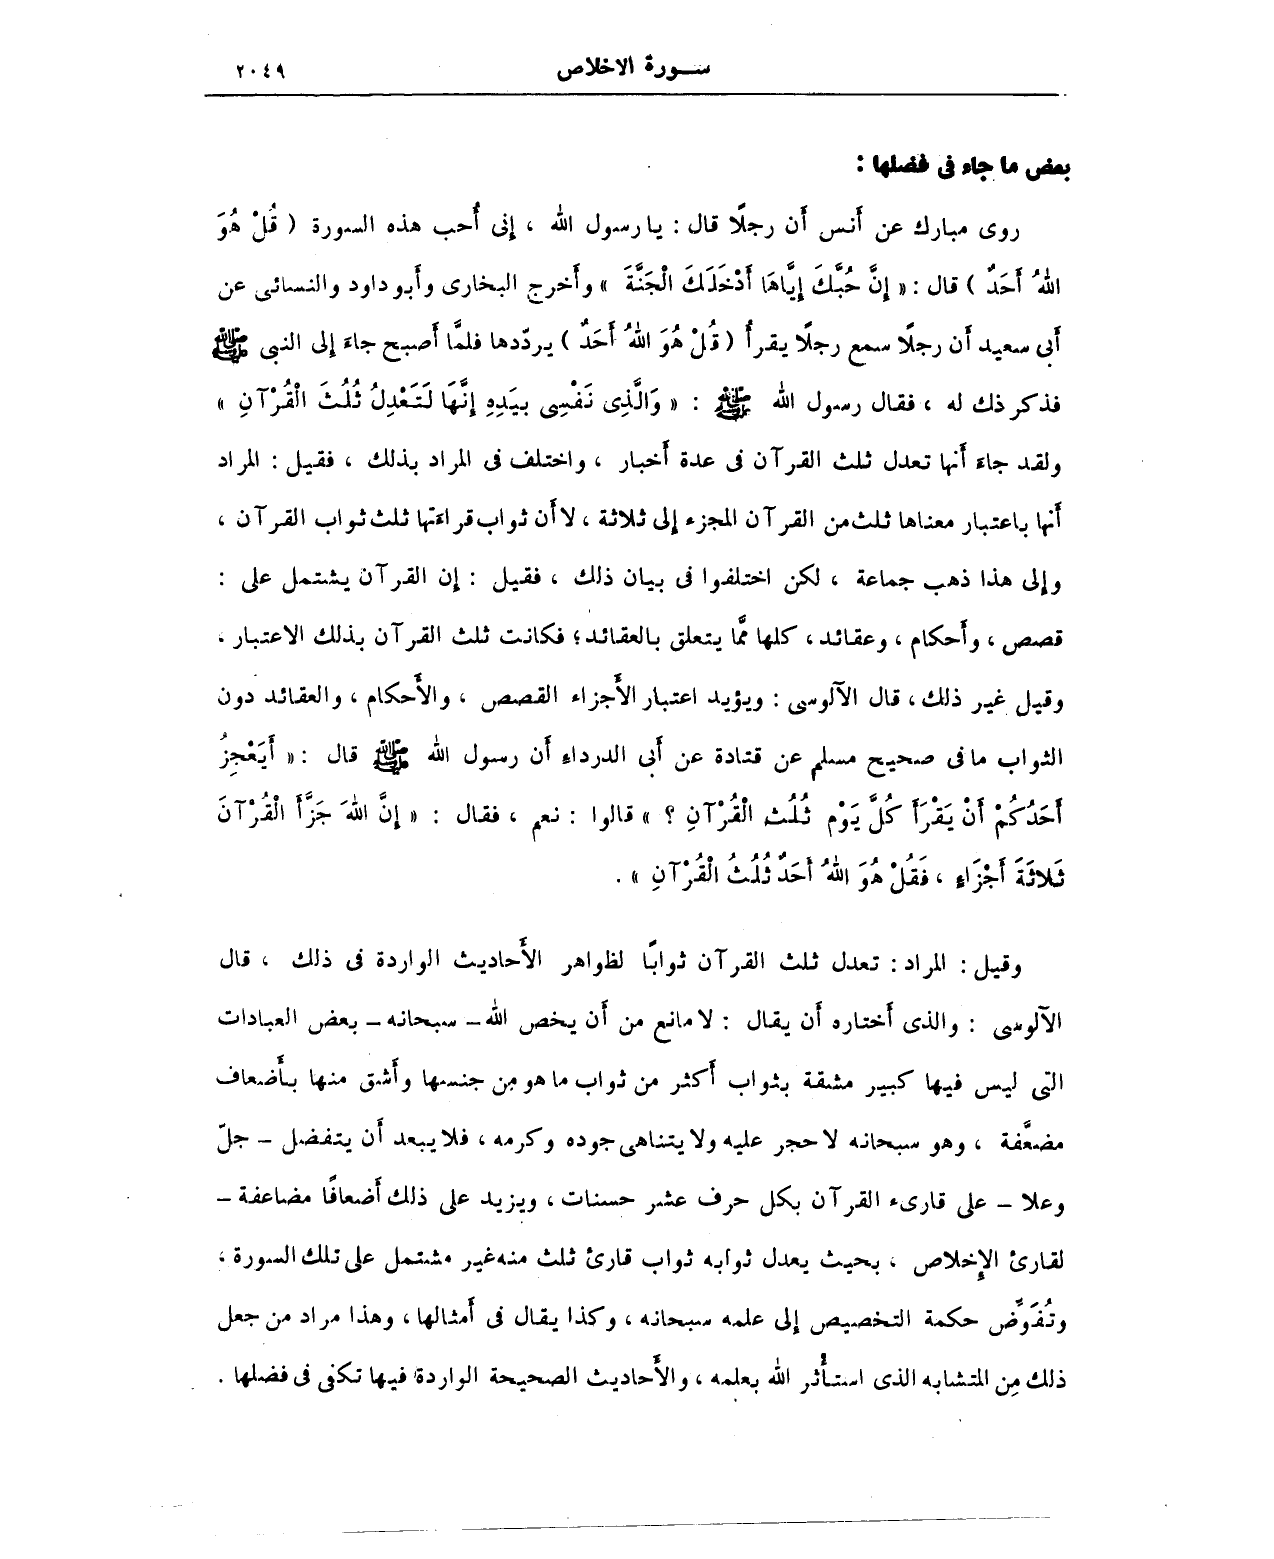 سـورة الاخلاص ٢٠٤٩
بعض ما جاء فى فضلها :
روى مبارك عن أَنس أَن رجلًا قال : يا رسول الله ، إنى أُحب هذه السورة ( قُلْ هُوَ
اللهُ أَحَدٌ ) قال : « إِنَّ حُبَّكَ إِيَّاهَا أَدْخَلَكَ الْجَنَّةَ » وأَخرج البخارى وأَبو داود والنسائى عن
أَبى سعيد أَن رجلًا سمع رجلًا يقرأُ ( قُلْ هُوَ اللهُ أَحَدٌ ) يردّدها فلمَّا أَصبح جاءَ إلى النبى ﷺ
فذكر ذلك له ، فقال رسول الله ﷺ : « وَالَّذِى نَفْسِى بِيَدِهِ إِنَّهَا لَتَعْدِلُ ثُلُثَ الْقُرْآنِ »
ولقد جاءَ أَنها تعدل ثلث القرآن فى عدة أَخبار ، واختلف فى المراد بذلك ، فقيل : المراد
أَنها باعتبار معناها ثلث من القرآن المجزء إلى ثلاثة ، لا أَن ثواب قراءَتها ثلث ثواب القرآن ،
وإلى هذا ذهب جماعة ، لكن اختلفوا فى بيان ذلك ، فقيل : إن القرآن يشتمل على :
قصص ، وأَحكام ، وعقائد ، كلها ممَّا يتعلق بالعقائد ؛ فكانت ثلث القرآن بذلك الاعتبار .
وقيل غير ذلك ، قال الآلوسى : ويؤيد اعتبار الأَجزاء القصص ، والأَحكام ، والعقائد دون
الثواب ما فى صحيح مسلم عن قتادة عن أَبى الدرداء أَن رسول الله ﷺ قال : « أَيَعْجِزُ
أَحَدُكُمْ أَنْ يَقْرَأَ كُلَّ يَوْمٍ ثُلُثَ الْقُرْآنِ ؟ » قالوا : نعم ، فقال : « إِنَّ اللهَ جَزَّأَ الْقُرْآنَ
ثَلَاثَةَ أَجْزَاءٍ ، فَقُلْ هُوَ اللهُ أَحَدٌ ثُلُثُ الْقُرْآنِ » .
وقيل : المراد : تعدل ثلث القرآن ثوابًا لظواهر الأَحاديث الواردة فى ذلك ، قال
الآلوسى : والذى أَختاره أَن يقال : لا مانع من أَن يخص الله – سبحانه – بعض العبادات
التى ليس فيها كبير مشقة بثواب أَكثر من ثواب ما هو مِن جنسها وأَشق منها بأَضعاف
مضعَّفة ، وهو سبحانه لا حجر عليه ولا يتناهى جوده وكرمه ، فلا يبعد أَن يتفضل – جلّ
وعلا – على قارىء القرآن بكل حرف عشر حسنات ، ويزيد على ذلك أَضعافًا مضاعفة –
لقارئ الإِخلاص ، بحيث يعدل ثوابه ثواب قارئ ثلث منه غير مشتمل على تلك السورة ،
وتُفَوِّض حكمة التخصيص إلى علمه سبحانه ، وكذا يقال فى أَمثالها ، وهذا مراد من جعل
ذلك مِن المتشابه الذى استأْثر الله بعلمه ، والأَحاديث الصحيحة الواردة فيها تكفى فى فضلها .